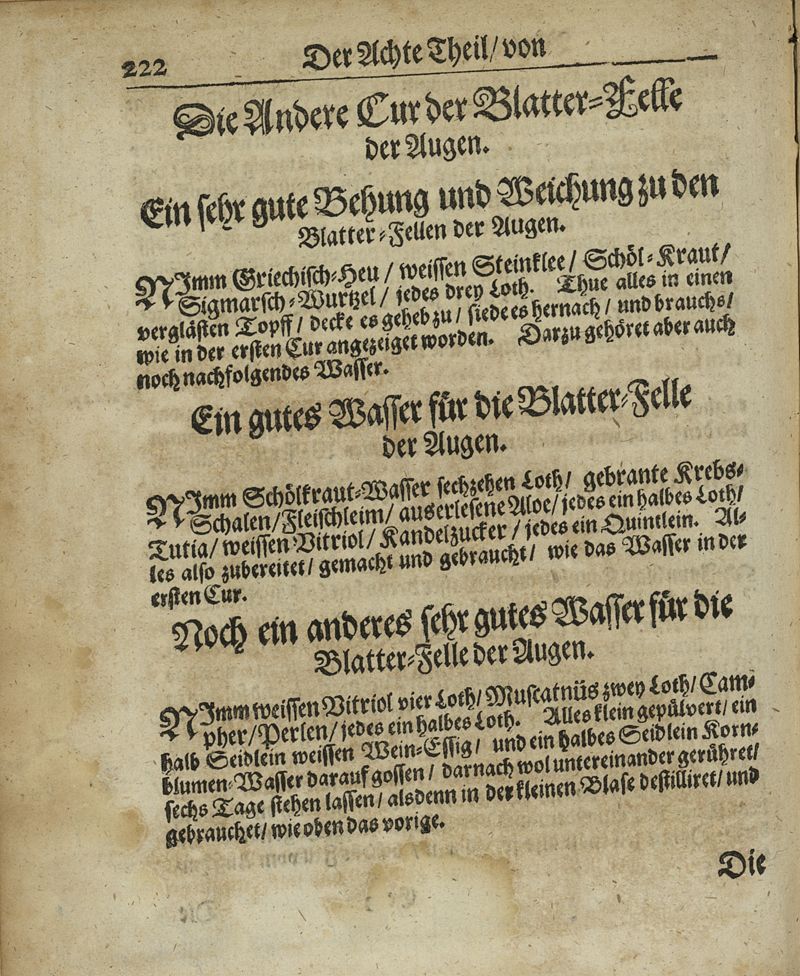 222
Der Achte Theil/ von
Die Andere Cur der Blatter-Felle
der Augen.
Ein sehr gute Behung und Weichung zu den
Blatter-Fellen der Augen.
NImm Griechisch-Heu/ weissen Steinklee/ Schöl-Kraut/
Sigmarsch-Wurtzel/ jedes drey Loth. Thue alles in einen
verglästen Topff/ decke es geheb zu/ siede es hernach/ und brauchs/
wie in der ersten Cur angezeiget worden. Darzu gehöret aber auch
noch nachfolgendes Wasser.
Ein gutes Wasser für die Blatter-Felle
der Augen.
NImm Schölkraut-Wasser sechzehen Loth/ gebrante Krebs-
Schalen/ Fleischleim/ auserlesene Aloe/ jedes ein halbes Loth/
Tutia/ weissen Vitriol/ Kandelzucker/ jedes ein Quintlein. Al-
les also zubereitet/ gemacht und gebraucht/ wie das Wasser in der
ersten Cur.
Noch ein anderes sehr gutes Wasser für die
Blatter-Felle der Augen.
NImm weissen Vitriol vier Loth/ Muscatnüs zwey Loth/ Cam-
pher/ Perlen/ jedes ein halbes Loth. Alles klein gepülvert/ ein
halb Seidlein weissen Wein-Essig/ und ein halbes Seidlein Korn-
blumen-Wasser darauf gossen/ darnach wol untereinander gerühret/
sechs Tage stehen lassen/ alsdenn in der kleinen Blase destilliret/ und
gebrauchet/ wie oben das vorige.
Die